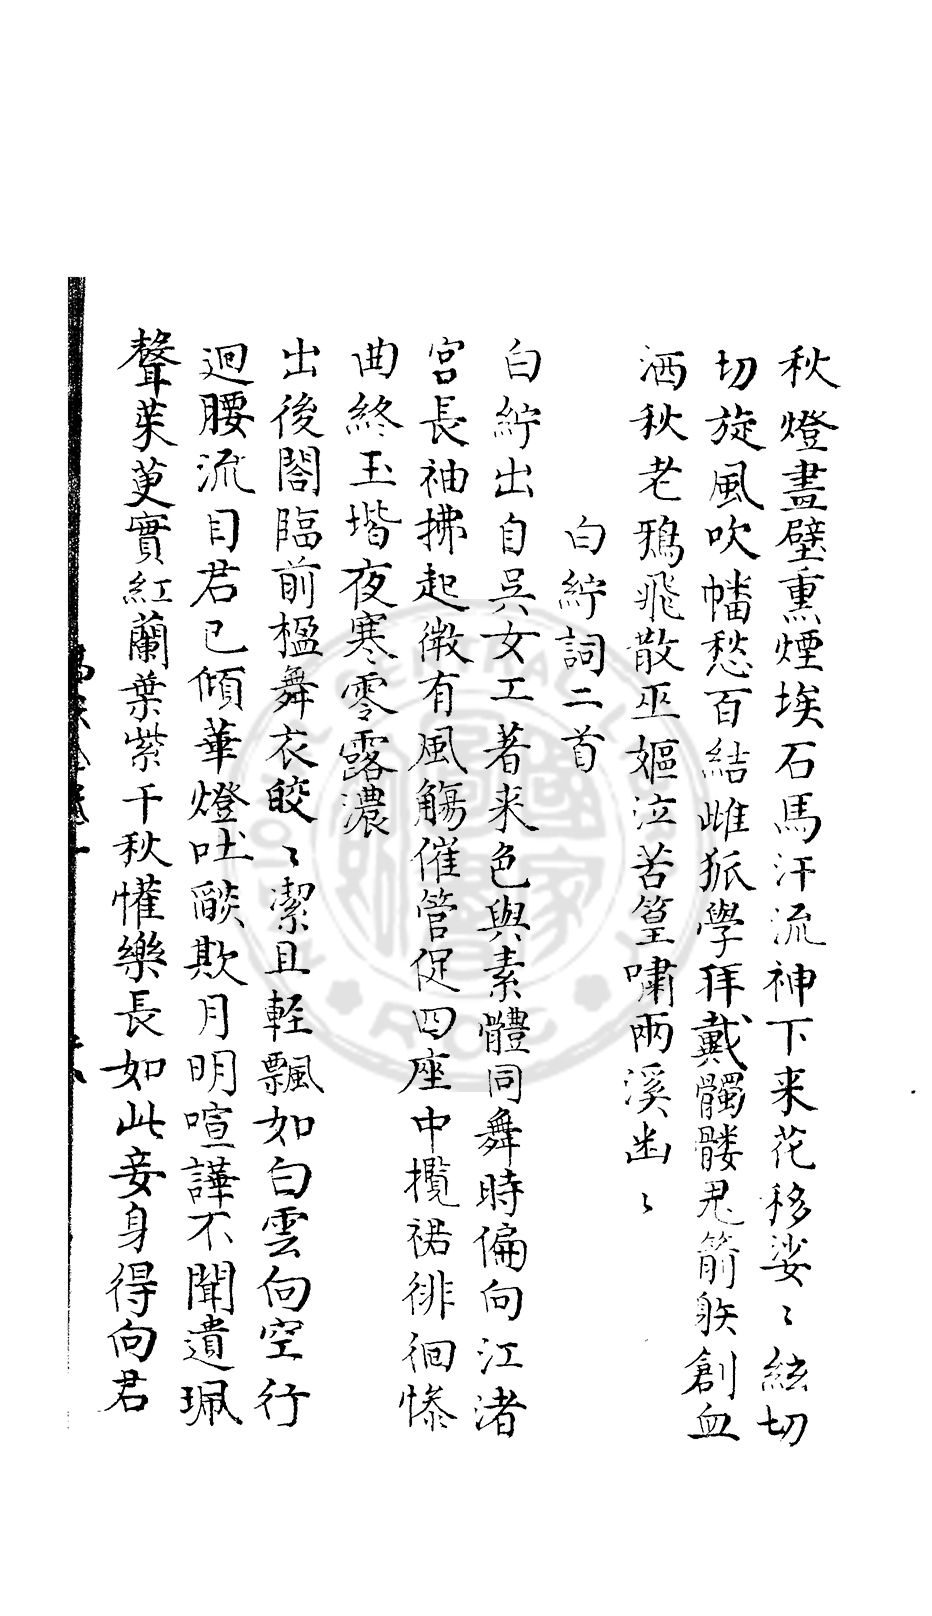 秋燈畫壁熏煙埃石馬汗流神下来花移娑〻絃切
切旋風吹幡愁百結雌狐學拜戴髑髏鬼箭躲創血
洒秋老鴉飛散巫嫗泣苦篁嘯兩溪幽〻
白紵詞二首
白紵出自吳女工著来色與素體同舞時偏向江渚
宮長袖拂起微有風觴催管促四座中攬裙徘徊慘
曲終玉堦夜寒零露濃
出後閤臨前楹舞衣皎〻潔且輕飄如白雲向空行
迴腰流目君已傾華燈吐燄欺月明喧譁不聞遺珮
聲茱萸實紅蘭葉紫千秋懽樂長如此妾身得向君